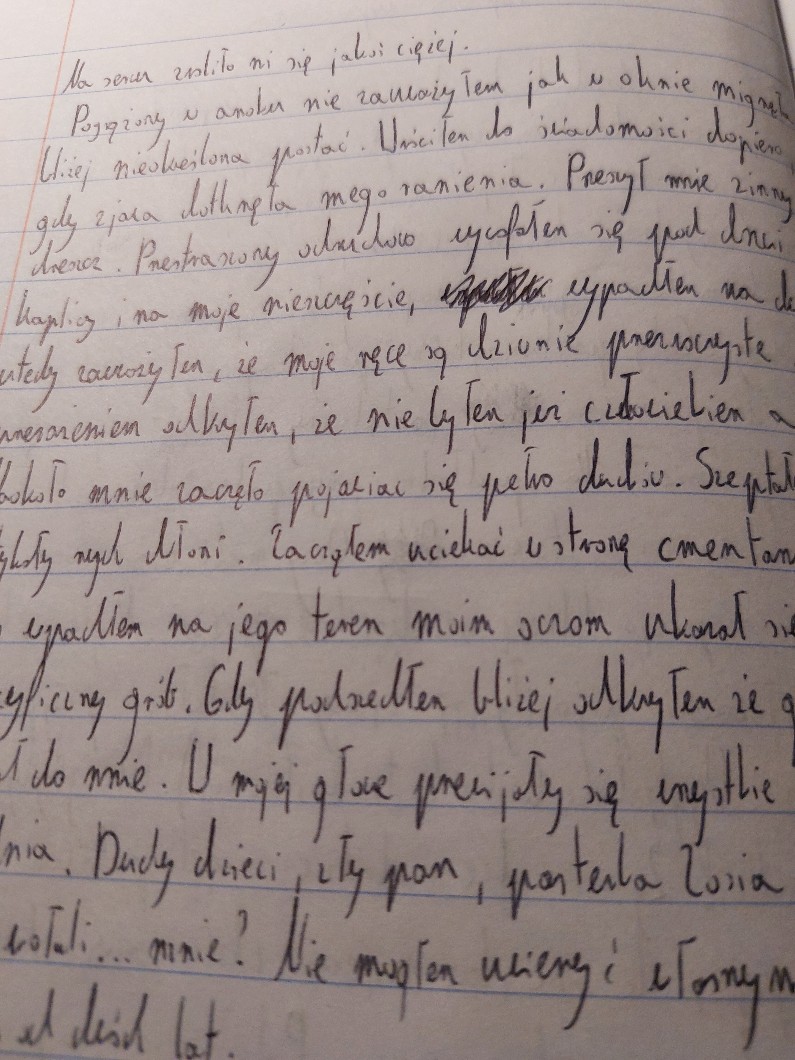 Na sercu zrobiło mi się jakoś ciężej.
Pogrążony w amoku nie zauważyłem jak w oknie mignęła
bliżej nieokreślona postać. Wróciłem do świadomości dopiero,
gdy zjawa dotknęła mego ramienia. Przeszył mnie zimny
dreszcz. Przestraszony odruchowo wycofałem się pod drzwi
kaplicy i na moje nieszczęście, wypadłem na
wtedy zauważyłem, że moje ręce są dziwnie przezroczyste
przerażeniem odkryłem, że nie byłem już człowiekiem a
wokoło mnie zaczęło pojawiać się pełno duchów. Szeptał
nych dłoni. Zacząłem uciekać w stronę cmentarz
wypadłem na jego teren moim oczom ukazał się
yficzny grób. Gdy podszedłem bliżej odkryłem że
ł do mnie. W mojej głowie przewijały się wszystkie
nia. Duchy dzieci, zły pan, posterka Zosia
wołali... mnie? Nie mogłem uwierzyć własnym
od dwóch lat.